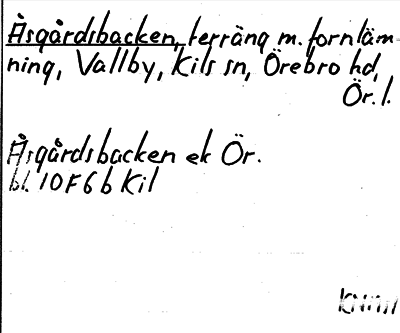 Åsgårdsbacken, terräng m. fornläm
ning, Vallby, Kils sn, Örebro hd,
Ör. l.
Åsgårdsbacken ek Ör.
bl. 10F6b Kil